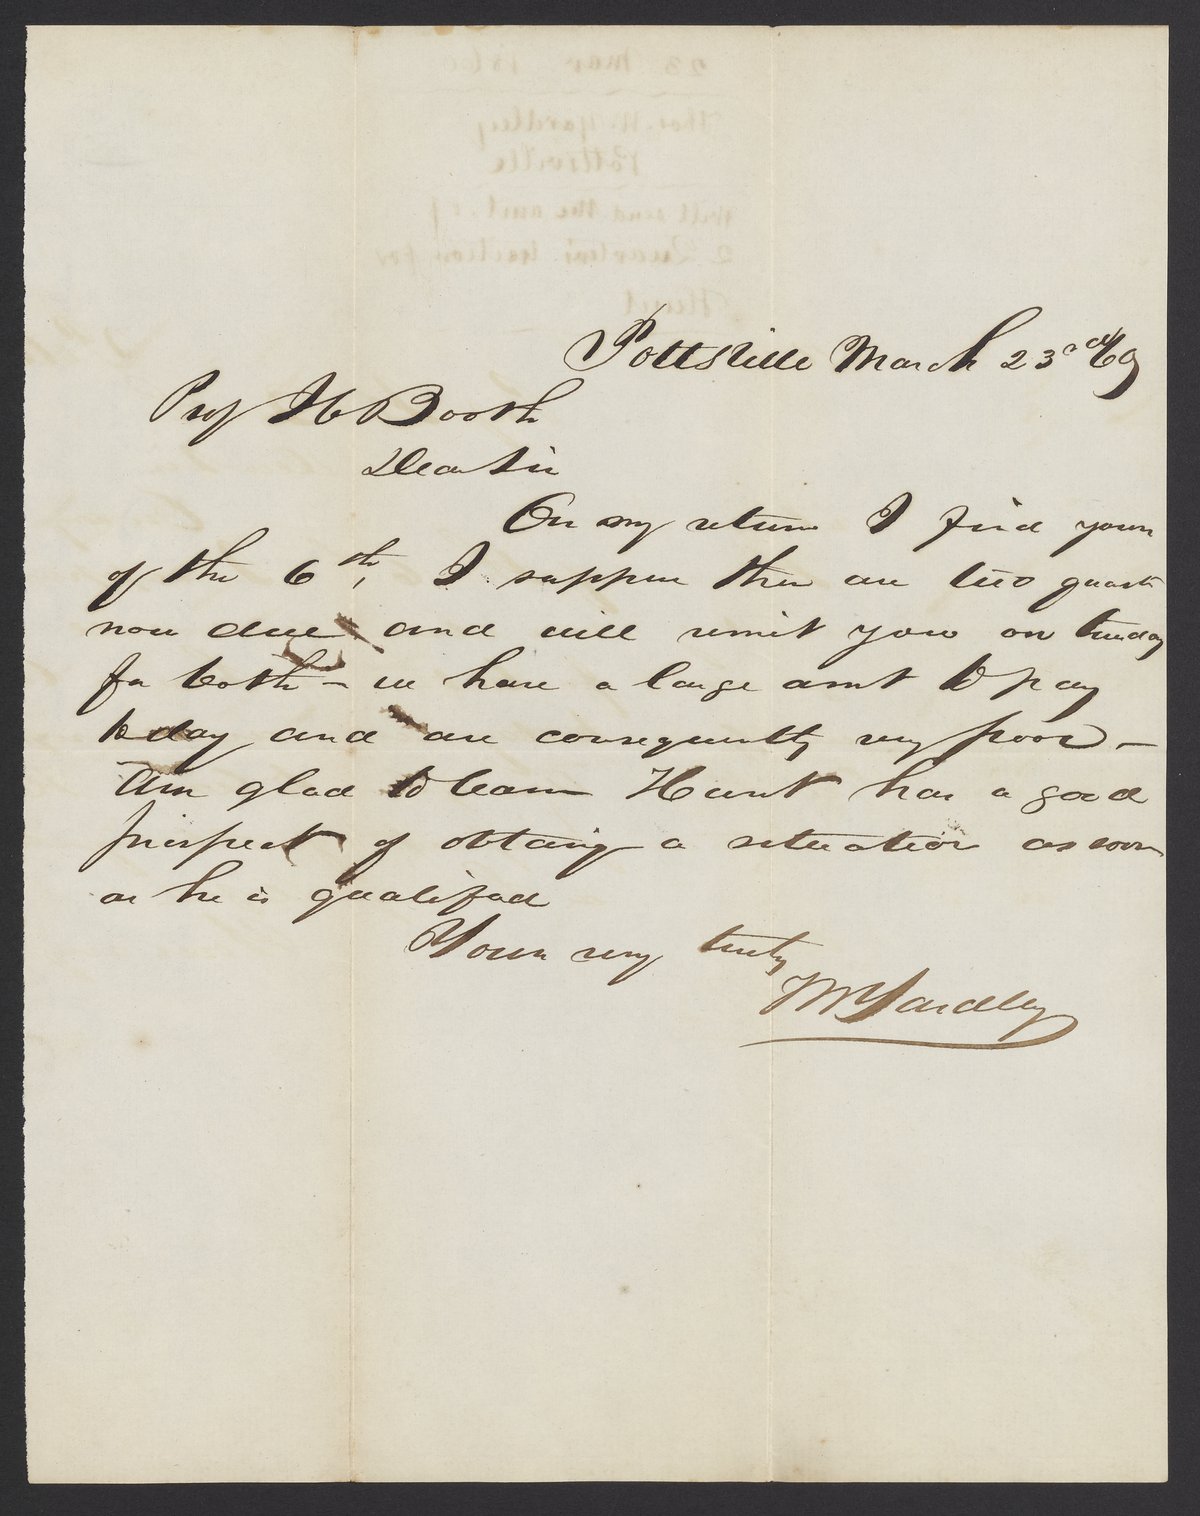 23 Mar 1860
Thos. W. Yardley
Pottsville
Will send the amt. of
2 Quarters tuition for
Hunt
Pottsville March 23rd 60
Prof Booth
Dear Sir
On my return I find yours
of the 6th, I suppose there are two quarts
now due and will remit you on tuesday
for both – we have a large amt to pay
to day and are consequently very poor –
Am glad to learn Hunt has a good
prospect of obtaing a situation as soon
as he is qualified
Yours very truly
Yardley